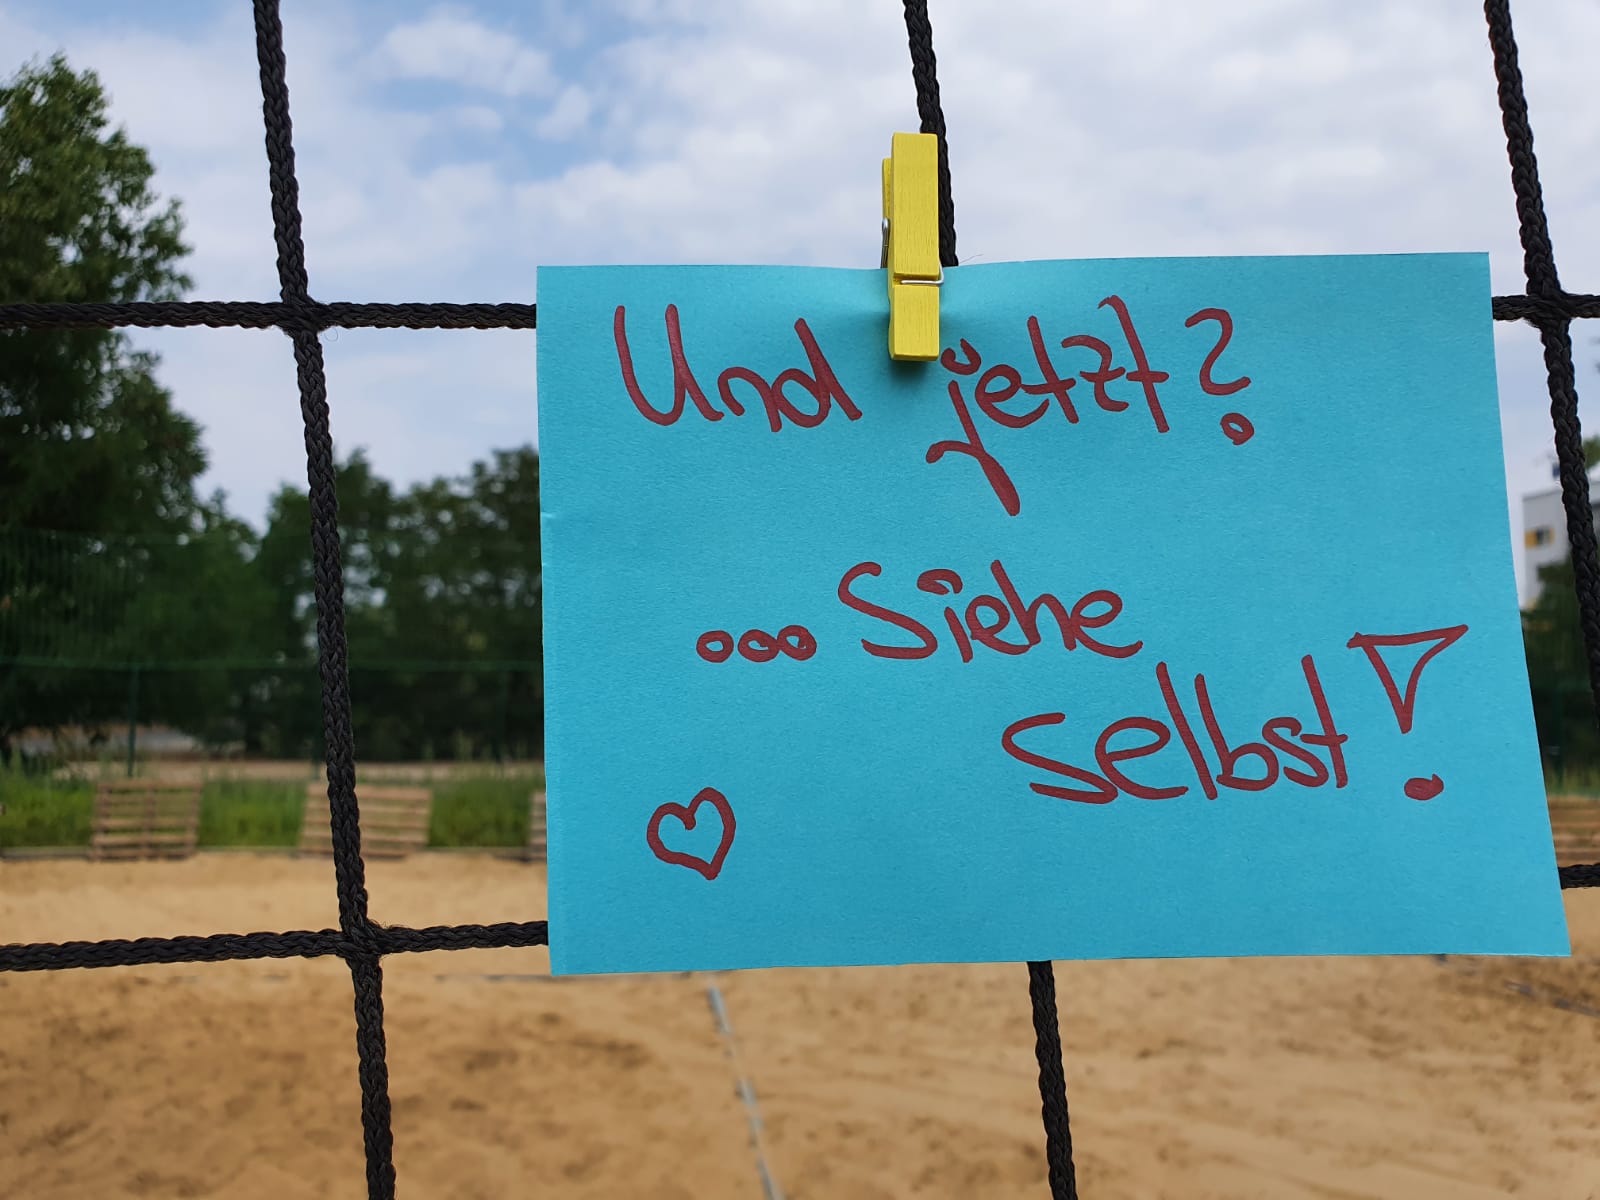 Und jetzt?
... Siehe
selbst!